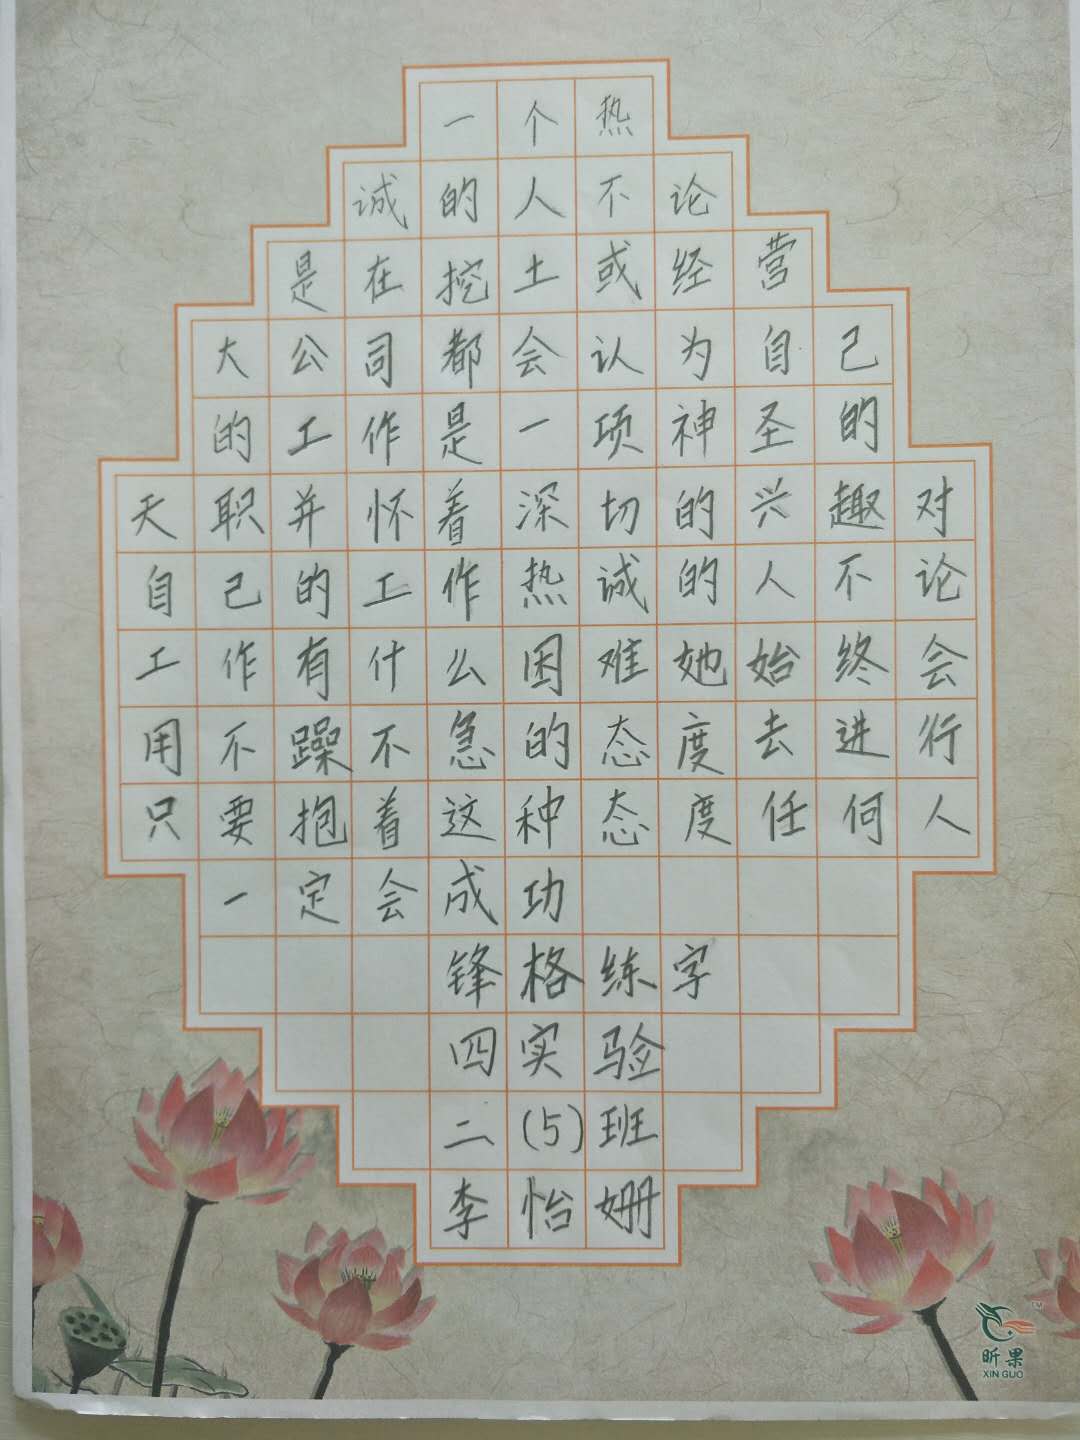 一个热
诚的人不论
是在挖土或经营
大公司都会认为自己
的工作是一项神圣的
天职并怀着深切的兴趣对
自己的工作热诚的人不论
工作有什么困难她始终会
用不躁不急的态度去进行
只要抱着这种态度任何人
一定会成功
锋格练字
四实验
二(5)班
李怡姗
昕果
XIN GUO
TM